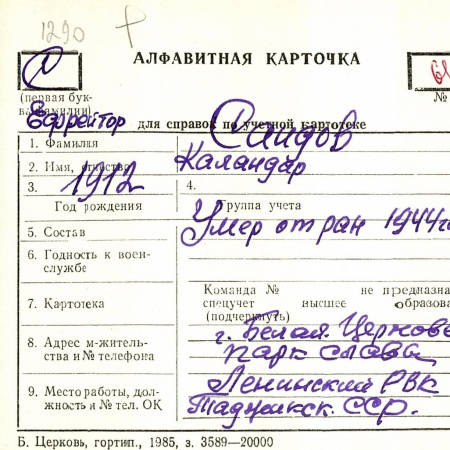 1290
АЛФАВИТНАЯ КАРТОЧКА
С
(первая бук-
ва фамилии)
№
Ефрейтор для справок по учетной картотеке
1. Фамилия Саидов
2. Имя, отчество Каландар
3. 1912 4.
Год рождения Группа учета
5. Состав Умер от ран 1944г
6. Годность к воен-
службе
Команда № не предназна
7. Картотека спецучет высшее образова
(подчеркнуть)
8. Адрес м-житель- г. Белая Церковь
ства и № телефона парк славы
9. Место работы, дол- Ленинский РВК
жность и № тел. ОК Таджикск. ССР.
Б. Церковь, гортип., 1985, з. 3589—20000